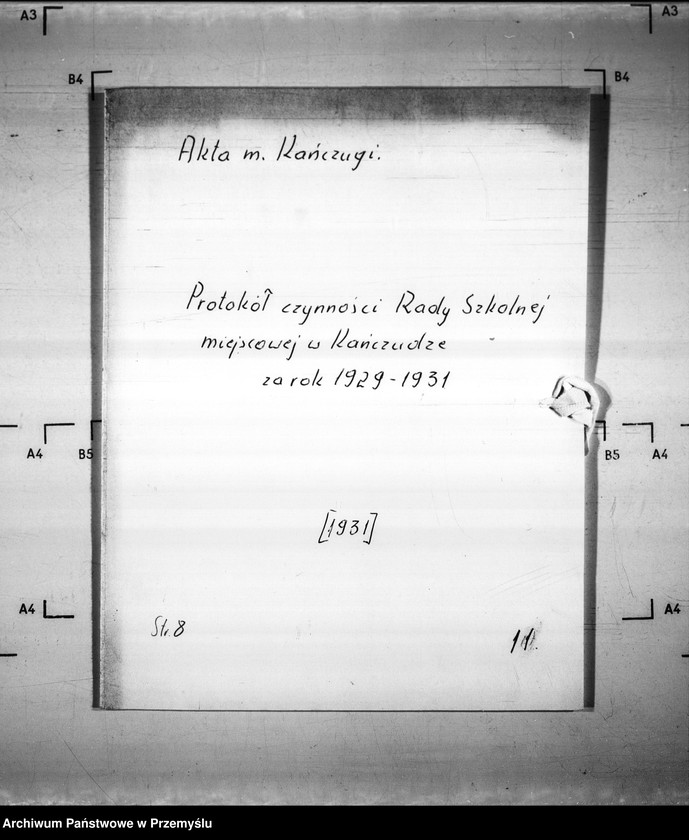 A3 A3
B4 B4
Akta m. Kańczugi.
Protokół czynności Rady Szkolnej
miejscowej w Kańczudze
za rok 1929-1931
A4 B5 B5 A4
[1931]
A4 A4
Str. 8
Archiwum Państwowe w Przemyślu